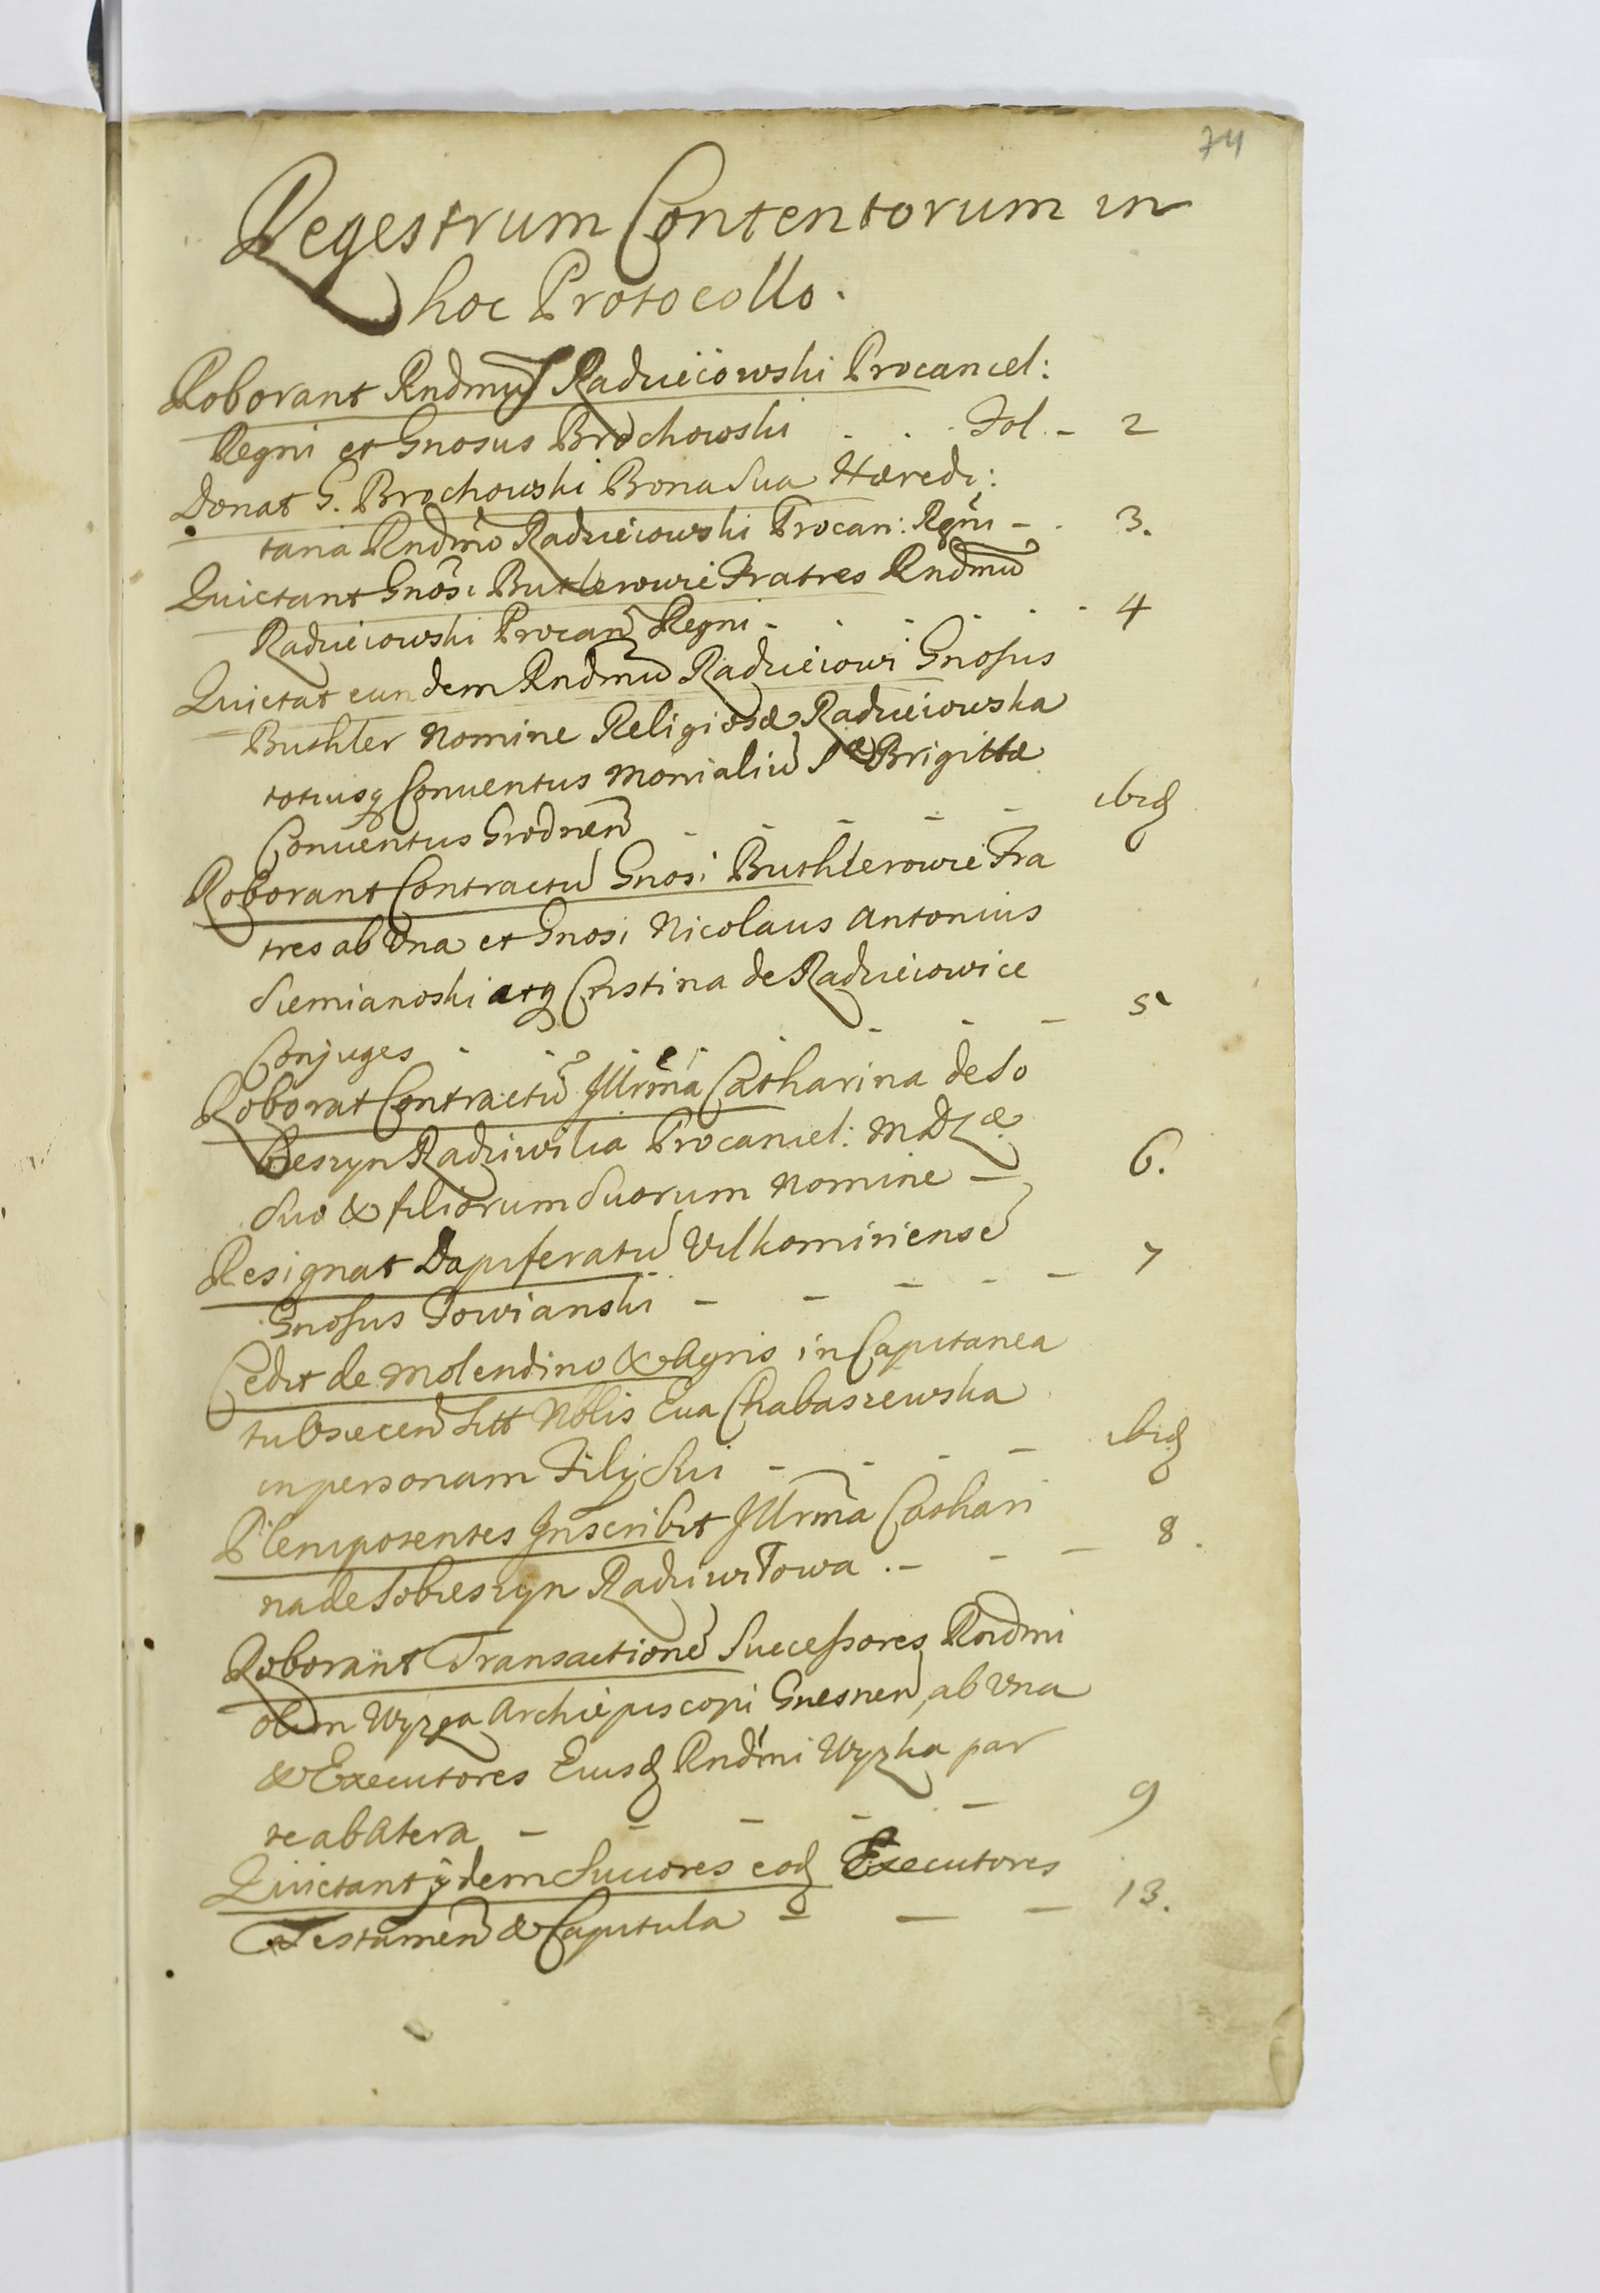 74
Regestrum Contentorum in
hoc Protocollo.
Roborant Rndmus Radzieiowski Procancel:
Regni et Gnosus Brochowski . . . Fol. - 2
Donat G. Brochowski Bona Sua Hæredi:
taria Rndmo Radzieiowski Procan: Rgni - . 3.
Quietant Gnosi Butlerowie Fratres Rndmū
Radzieiowski Procan Regni - . . . . 4
Quietat eundem Rndmū Radzieiowi Gnosus
Buthler Nomine Religiosæ Radzieiowska
totiusq Conventus Monialiū S æ Brigittæ
Conventus Grodnen - - - - - ibid
Roborant Contractū Gnosi Buthlerowie Fra
tres ab Una et Gnosi Nicolaus Antonius
Siemianoski atq Cristina de Radzieiowice
Conjuges - - - - - - 5
Roborat Contractū Illrma Catharina de So
bieszyn Radziwilia Procancel: MDLæ
Suo & filiorum Suorum Nomine - 6.
Resignat Dapiferatū Vilkomiriensē
Gnosus Towianski - - - - - 7
Cedit de Molendino & Agris in Capitanea
tu Osiecen Sitt Nobilis Eva Chabaszewska
in personam Filij Sui - - - - ibid
Plenipotentes Inscribit Illrma Cathari
na de Sobieszyn Radziwiłowa . - - - 8.
Roborant Transactionē Successores Rndmi
olim Wyzga Archiepiscopi Gnesnen ab Una
& Executores Eiusd Rndmi Wyzka par
te ab Altera - - - - - 9
Quietant ijdem Succores eosd Executores
Testamen & Capitula - - - 13.